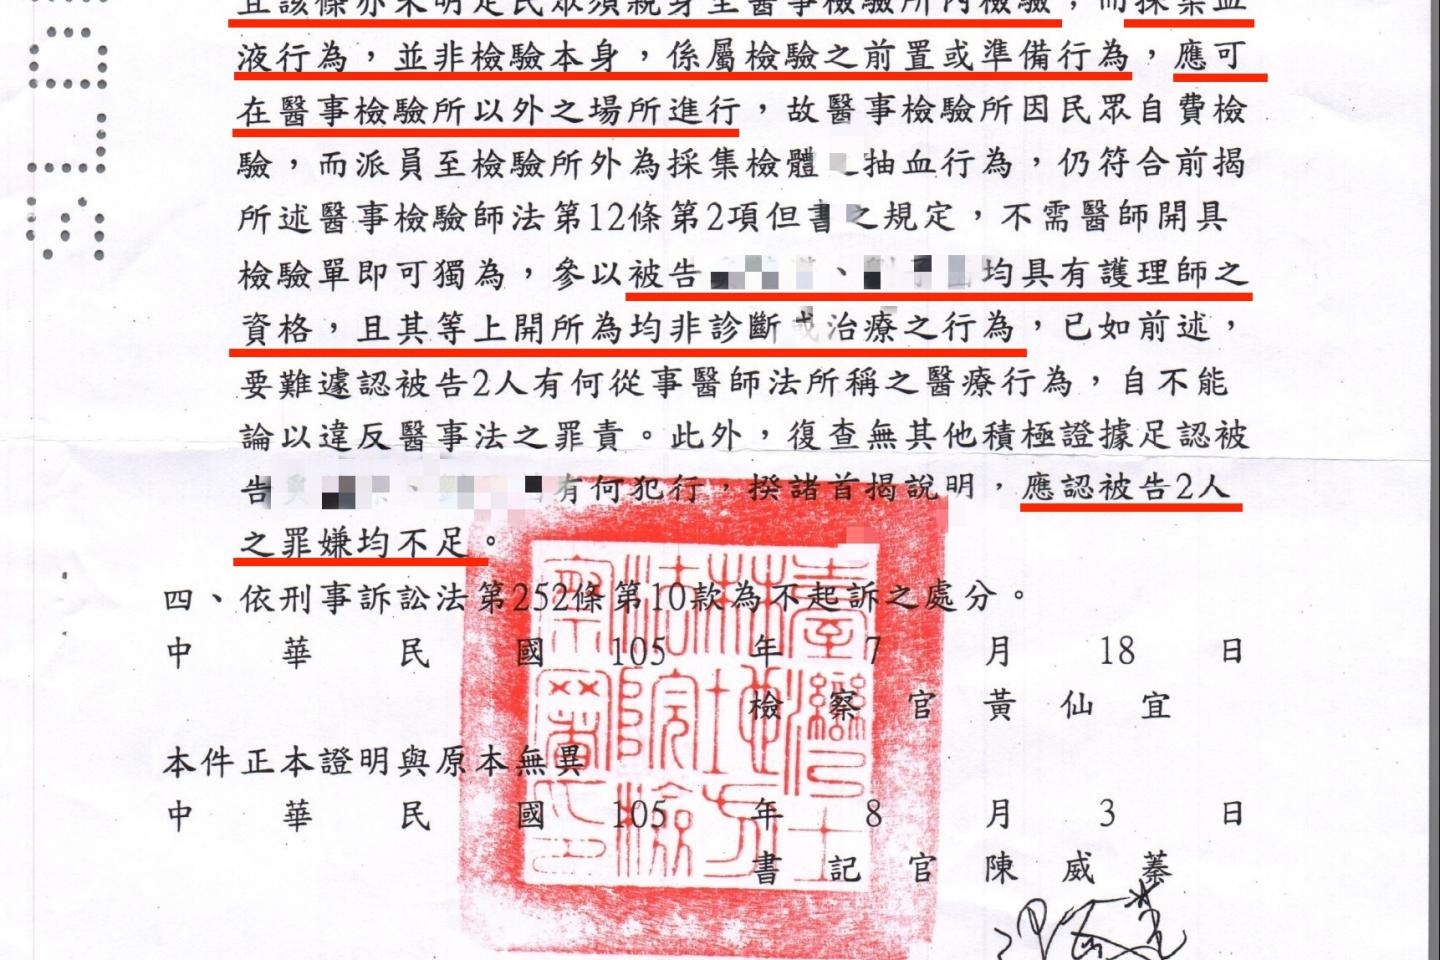 且該條亦未明定民眾須親身至醫事檢驗所內檢驗，而採集血
液行為，並非檢驗本身，係屬檢驗之前置或準備行為，應可
在醫事檢驗所以外之場所進行，故醫事檢驗所因民眾自費檢
驗，而派員至檢驗所外為採集檢體之抽血行為，仍符合前揭
所述醫事檢驗師法第12條第2項但書之規定，不需醫師開具
檢驗單即可獨為，參以被告、均具有護理師之
資格，且其等上開所為均非診斷或治療之行為，已如前述，
要難遽認被告2人有何從事醫師法所稱之醫療行為，自不能
論以違反醫事法之罪責。此外，復查無其他積極證據足認被
告、有何犯行，揆諸首揭說明，應認被告2人
之罪嫌均不足。
四、依刑事訴訟法第252條第10款為不起訴之處分。
中華民國105年7月18日
檢察官黃仙宜
本件正本證明與原本無異
中華民國105年8月3日
書記官陳威蓁
臺灣士林地方法院檢察署印